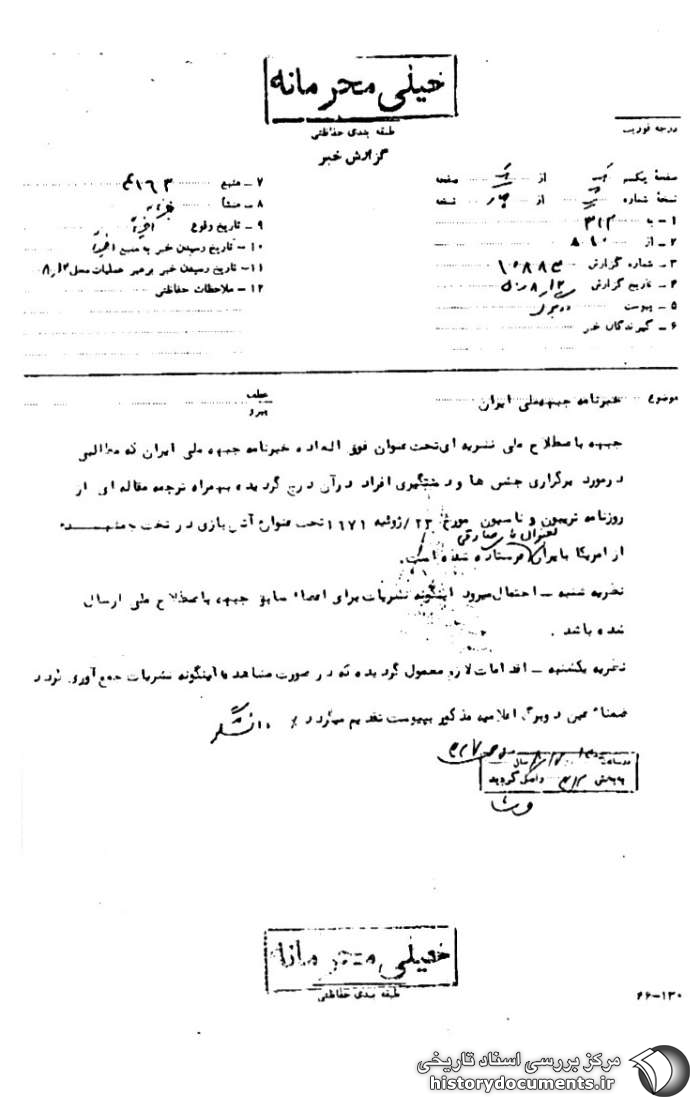 خیلی محرمانه
طبقه بندی حفاظتی
گزارش خبر
درجه فوریت
صفحهٔ یکم از صفحه
نسخهٔ شماره از نسخه
۱ـ به ۳۱۲
۲ـ از ۸۱۰
۳ـ شماره گزارش
۴ـ تاریخ گزارش
۵ـ پیوست دو برگ
۶ـ گیرندگان خبر
۷ـ منبع
۸ـ منشأ
۹ـ تاریخ وقوع اخیراً
۱۰ـ تاریخ رسیدن خبر به منبع اخیراً
۱۱ـ تاریخ رسیدن خبر برهبر عملیات محل
۱۲ـ ملاحظات حفاظتی
موضوع خبرنامه جبهه ملی ایران
عطف
پیرو
جبهه باصطلاح ملی نشریه ای تحت عنوان فوق الـاده خبرنامه جبهه ملی ایران که مطالبی
درمورد برگزاری جشن ها و دستگیری افراد در آن درج گردیده بهمراه ترجمه مقاله ای از
روزنامه تریبون و ناسیون مورخ ۲۳/ژوئیه ۱۹۷۱ تحت عنوان آتش بازی در تخت جمشیـد
بعنوان صادقی
از امریکا بایران فرستاده شده است.
نظریه شنبه ـ احتمال میرود اینگونه نشریات برای اعضاء سابق جبهه باصطلاح ملی ارسال
شده باشد.
نظریه یکشنبه ـ اقدامات لازم معمول گردیده که در صورت مشاهده اینگونه نشریات جمع آوری گردد
ضمناً عین دوبرگ اعلامیه مذکور بپیوست تقدیم میگردد دانشگر
در ساعت
به بخش ۳۱۲ واصل گردید
خیلی محرمانه
طبقه بندی حفاظتی
۶۶-۱۳۰
مرکز بررسی اسناد تاریخی
historydocuments.ir